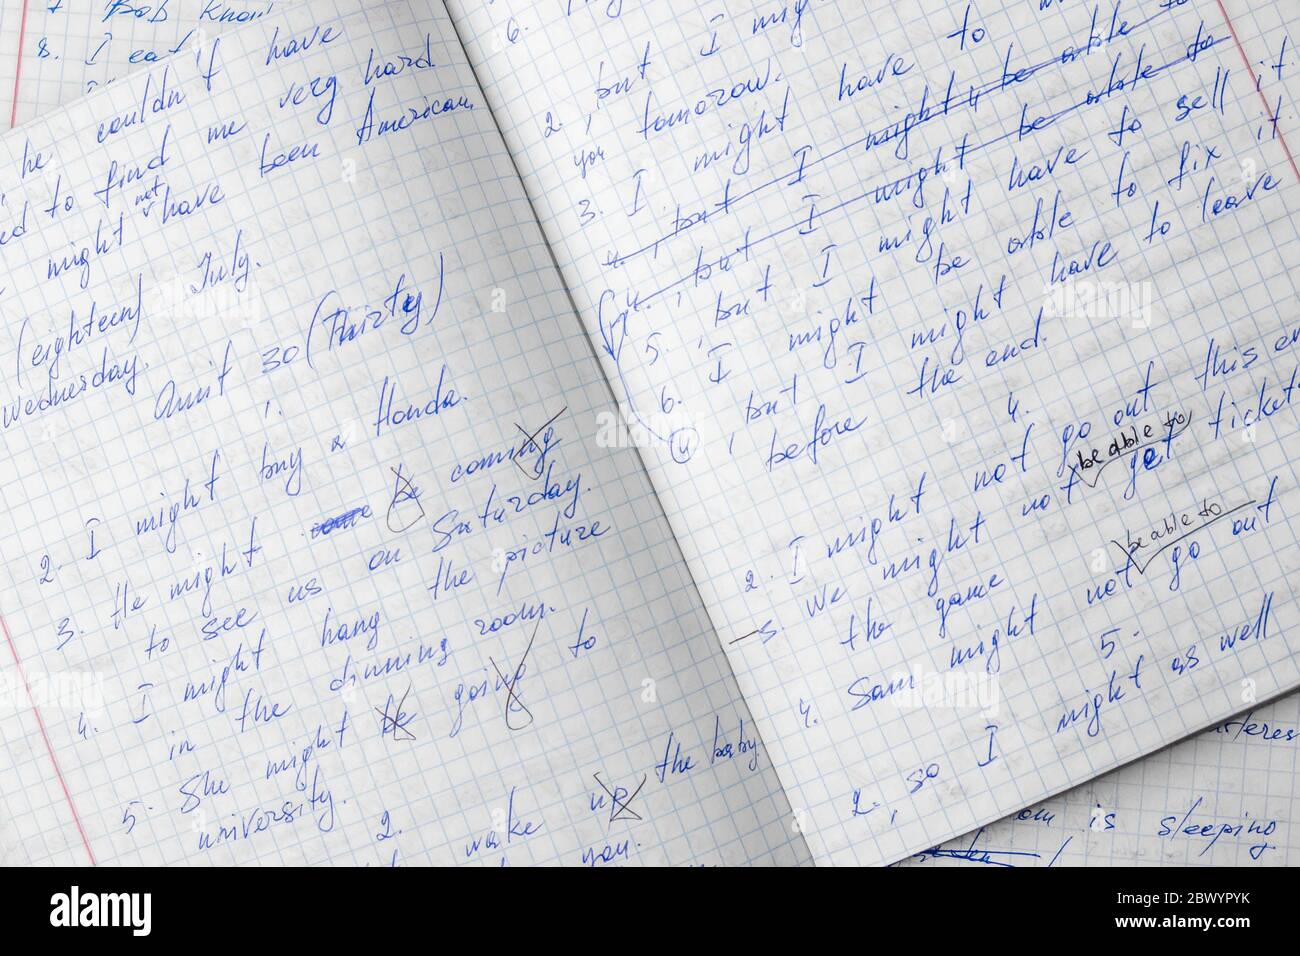 Bob know
8. I eat
he couldn't have
ed to find me very hard
might not have been American.
(eighteen) July.
Wednesday.
Unit 30 (Thirty)
1.
2. I might buy a Honda.
3. He might be coming
to see us on Saturday.
4. I might hang the picture
in the dinning room.
5. She might be going to
university.
2.
wake up the baby
you.
6.
2. , but I
you tomorow.
3. I might have to
4. , but I might be able to
4. , but I might be able to
5. , but I might have to sell it.
6. I might be able to fix it
4 , but I might have to leave
before the end.
4.
2. I might not go out this
3. We might not be able to get ticket
the game
4. Sam might not be able to go out
5.
2. , so I might as well
is sleeping
alamy
Image ID: 2BWYPYK
www.alamy.com